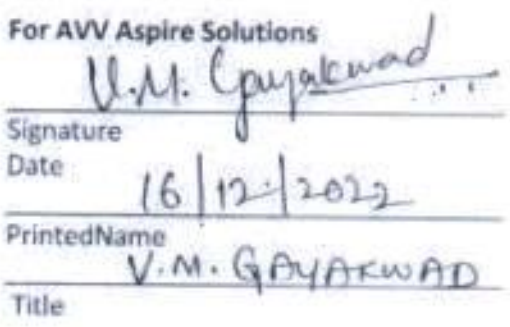 For AVV Aspire Solutions
V.M. Gayakwad
Signature
Date
16/12/2022
PrintedName
V.M. GAYAKWAD
Title